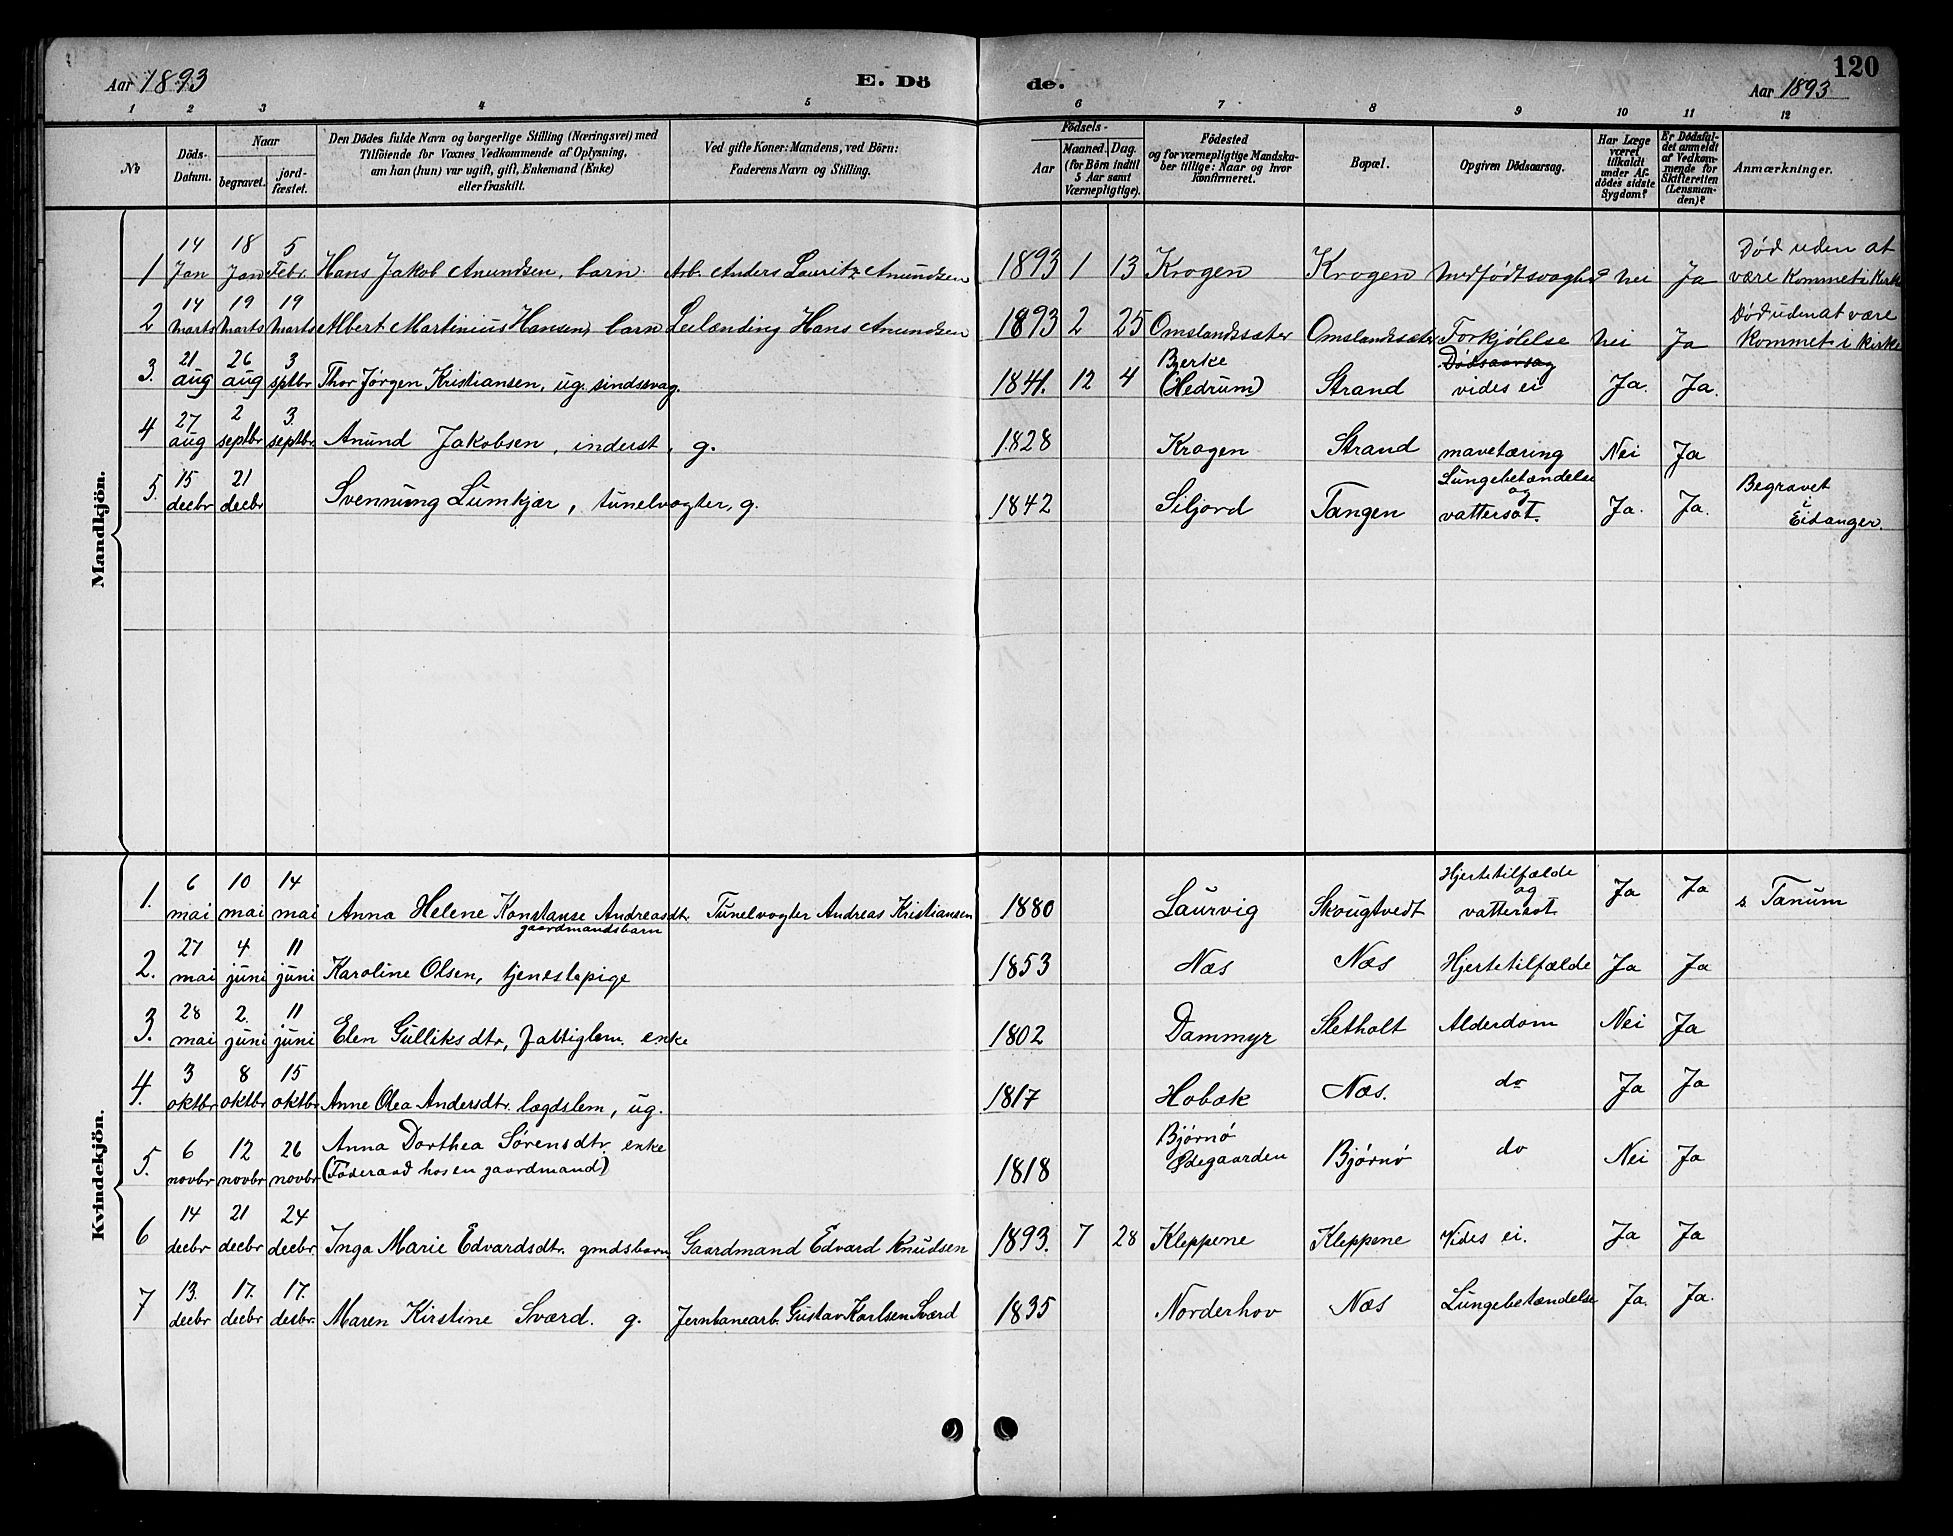 120
Aar 1893 E. Dö de. Aar 1893
1 2 3 4 5 6 7 8 9 10 11 12
No. Döds-Datum. Naar begravet. jord-fæstet. Den Dödes fulde Navn og borgerlige Stilling (Næringsvei) med Tilföiende for Voxnes Vedkommende af Oplysning, om han (hun) var ugift, gift, Enkemand (Enke) eller fraskilt. Ved gifte Koner: Mandens, ved Börn: Faderens Navn og Stilling. Födsels- Aar Maaned. Dag. (for Börn indtil 5 Aar samt Værnepligtige). Födested og for værnepligtige Mandska-ber tillige: Naar og hvor konfirmeret. Bopæl. Opgiven Dödsaarsag. Har Læge været tilkaldt under Af-dödes sidste Sygdom? Er Dödsfal-det anmeldt af Vedkom-mende for Skifteretten (Lensman-den)? Anmærkninger.
Mandkjön.
1 14 Jan 18 Jan 5 Febr. Hans Jakob Anundsen, barn Arb. Anders Lauritz Anundsen 1893 1 13 Krogen Krogen Medfødt svaghed Nei Ja Død uden at være kommet i kirke
2 14 Marts 19 Marts 19 Marts Albert Martinius Hansen, barn Leilænding Hans Anundsen 1893 2 25 Omslandsæter Omslandsæter Forkjølelse Nei Ja Død uden at være kommet i kirke
3. 21 aug 26 aug 3 sptbr Thor Jørgen Kristiansen, ug. sindssvag. 1841. 12 4 Bjerke (Hedrum) Strand Dødsaarsag vides ei Ja. Ja.
4 27 aug 2 septbr 3. septbr. Anund Jakobsen, inderst, g. 1828 Krogen Strand mavetæring Nei Ja
5. 15 decbr 21 decbr Svennung Lumkjær, tunelvogter, g. 1842 Siljord Tangen Lungebetændelse og vattersot. Ja. Ja. Begravet i Eidanger.
Kvindekjön.
1. 6 mai 10 mai 14 mai Anna Helene Konstanse Andreasdtr. gaardmandsbarn Tunelvogter Andreas Kristiansen 1880 Laurvig Skougtvedt Hjertetilfælde og vattersot Ja Ja s. Tanum
2. 27 mai 4 juni 11 juni Karoline Olsen, tjenestepige 1853 Næs Næs Hjertetilfælde Ja Ja
3. 28 mai 2. juni 11 juni Elen Gulliksdtr, fattiglem. enke 1802 Dammyr Sletholt Alderdom Nei Ja
4. 3 oktbr 8 oktbr 15 oktbr Anne Olea Andersdtr. lægdslem, ug. 1817 Hobæk Næs. do Ja Ja
5. 6 novbr 12 novbr 26 novbr Anna Dorthea Sørensdtr. enke (Föderaad hos en gaardmand) 1818 Bjørnø Ødegaarden Bjørnø do Nei Ja
6 14 decbr 21 decbr 24 decbr. Inga Marie Edvardsdtr. gmdsbarn Gaardmand Edvard Knudsen 1893. 7 28 Kleppene Kleppene Vides ei. Ja Ja
7 13. decbr 17. decbr 17. decbr. Maren Kirstine Sværd. g. Jernbanearb. Gustav Karlsen Sværd 1835 Norderhov Næs Lungebetændelse Ja. Ja.